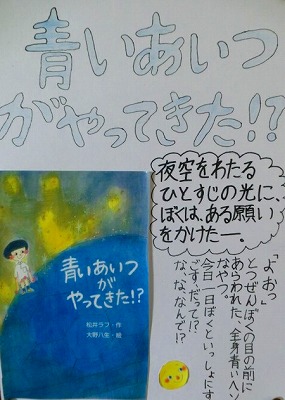 青いあいつ
がやってきた!?
夜空をわたる
ひとすじの光に、
ぼくは、ある願い
をかけたー。
青いあいつ
が
やってきた!?
松井ラフ・作
大野八生・絵
「よおっ」
とつぜんぼくの目の前に
あらわれた、全身青いヘン
なやつ。
今日一日ぼくといっしょにす
ごす、だって!?
な、な、なんで!?